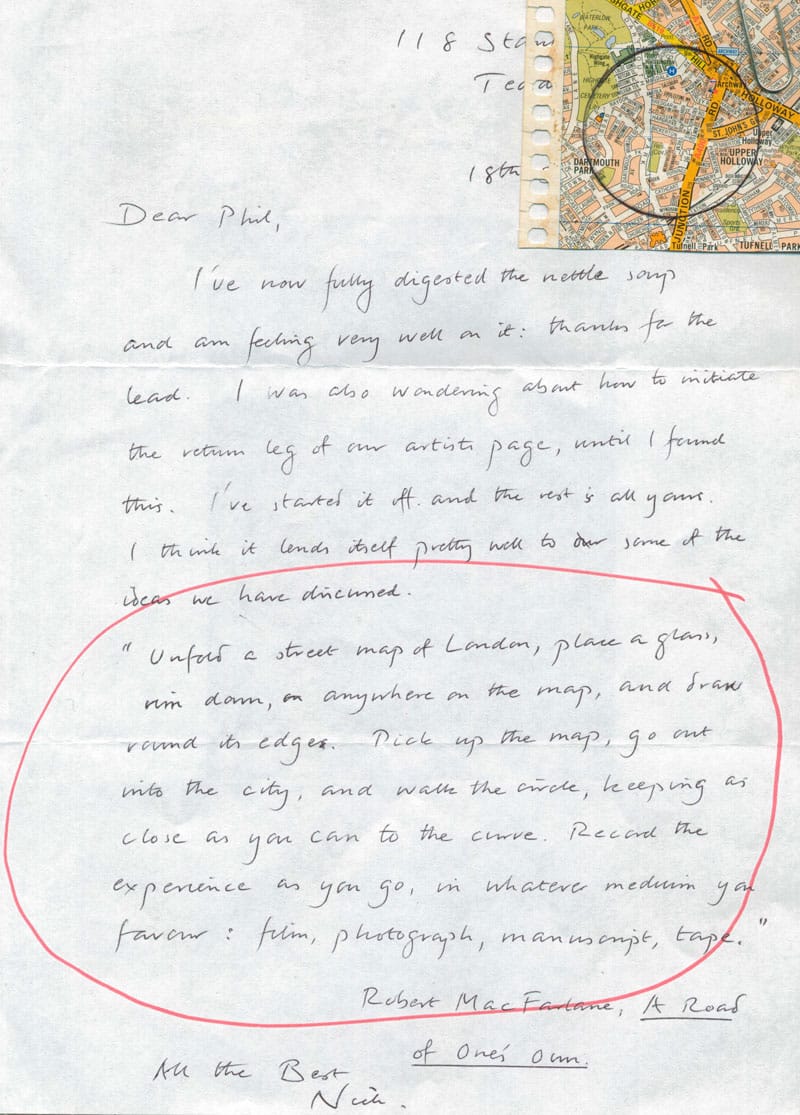 118 Stan
Tedd
18th
WATERLOW
PARK
HIGHGATE
CEMETERY
HILL
RD
Archway
HOLLOWAY
RD
ST. JOHN'S
Upper
Holloway
UPPER
HOLLOWAY
DARTMOUTH
PARK
JUNCTION
Tufnell Park
TUFNELL PARK
Dear Phil,
I've now fully digested the nettle soup
and am feeling very well on it: thanks for the
lead. I was also wondering about how to initiate
the return leg of our artists page, until I found
this. I've started it off and the rest is all yours.
I think it lends itself pretty well to some of the
ideas we have discussed.
" Unfold a street map of London, place a glass,
rim down, anywhere on the map, and draw
round its edge. Pick up the map, go out
into the city, and walk the circle, keeping as
close as you can to the curve. Record the
experience as you go, in whatever medium you
favour: film, photograph, manuscript, tape."
Robert MacFarlane, A Road
of One's Own.
All the Best
Nick.